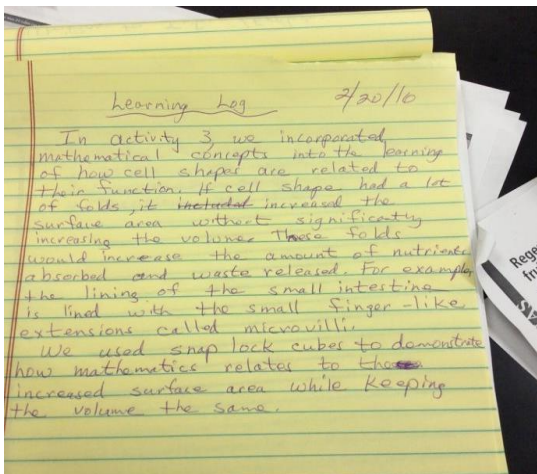 Learning Log
2/20/16
In activity 3, we incorporated
mathematical concepts into the learning
of how cell shapes are related to
their function. If cell shape had a lot
of folds, it included increased the
surface area without significantly
increasing the volume. These folds
would increase the amount of nutrients
absorbed and waste released. For example,
the lining of the small intestine
is lined with the small finger-like
extensions called microvilli.
We used snap lock cubes to demonstrate
how mathematics relates to
increased surface area while keeping
the volume the same.
Rege
fru